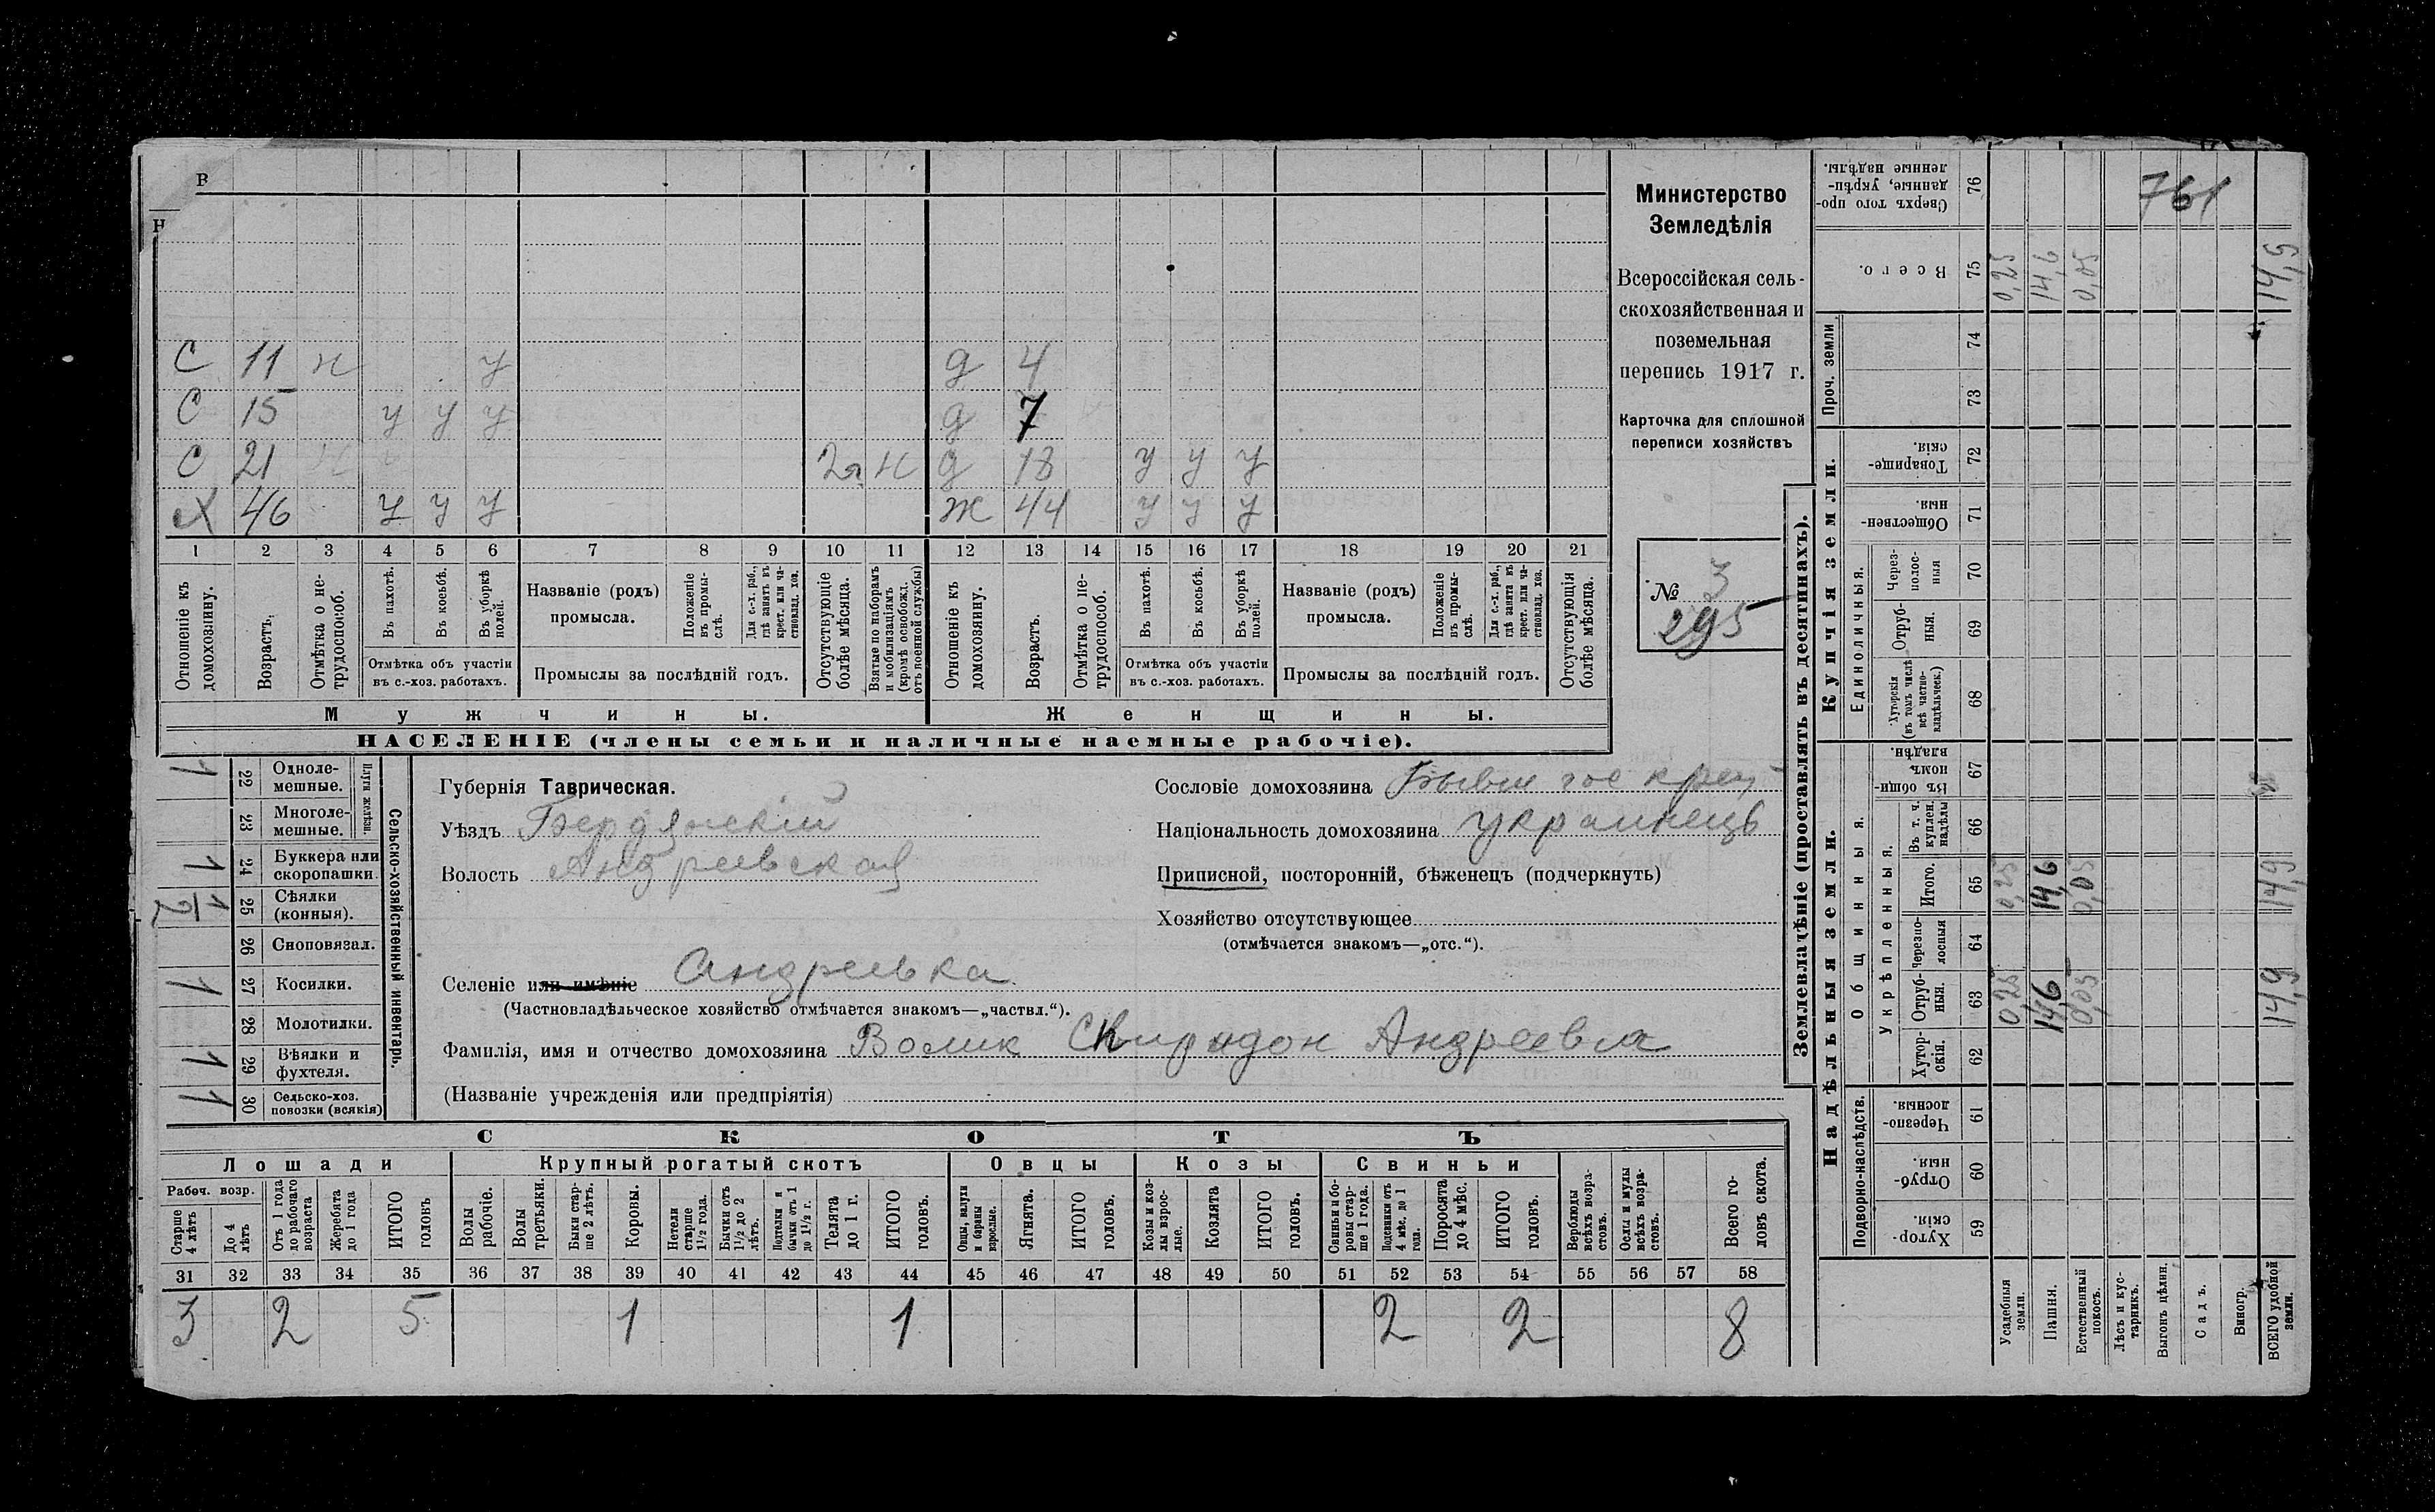 В
Н
С 11 н у д 4
С 15 у у у д 7
С 21 н 2 г. н д 18 у у у
Х 46 у у у ж 44 у у у
1 2 3 4 5 6 7 8 9 10 11 12 13 14 15 16 17 18 19 20 21
Отношеніе къ домохозяину.
Возрастъ.
Отмѣтка о не-трудоспособ.
Въ пахотѣ.
Въ косьбѣ.
Въ уборкѣ полей.
Отмѣтка объ участіи
въ с.-хоз. работахъ.
Названіе (родъ)
промысла.
Положеніе въ промы-слѣ.
Для с.-х. раб., гдѣ занятъ въ крест. или ча-стновлад. хоз.
Промыслы за послѣдній годъ.
Отсутствующіе болѣе мѣсяца.
Взятые по наборамъ и мобилизаціямъ (кромѣ освобожд. отъ военной службы)
Отношеніе къ домохозяину.
Возрастъ.
Отмѣтка о не-трудоспособ.
Въ пахотѣ.
Въ косьбѣ.
Въ уборкѣ полей.
Отмѣтка объ участіи
въ с.-хоз. работахъ.
Названіе (родъ)
промысла.
Положеніе въ промы-слѣ.
Для с.-х. раб., гдѣ занята въ крест. или ча-стновлад. хоз.
Промыслы за послѣдній годъ.
Отсутствующія болѣе мѣсяца.
Мужчины.
Женщины.
НАСЕЛЕНІЕ (члены семьи и наличные наемные рабочіе).
Министерство
Земледѣлія
Всероссійская сель-
скохозяйственная и
поземельная
перепись 1917 г.
Карточка для сплошной
переписи хозяйствъ
№ 3
295
Сельско-хозяйственный инвентарь.
Плуги желѣзн.
1 22 Одноле-мешные.
23 Многоле-мешные.
1 24 Буккера или скоропашки.
1/2 25 Сѣялки (конныя).
26 Сноповязал.
1 27 Косилки.
28 Молотилки.
1 29 Вѣялки и фухтеля.
1 30 Сельско-хоз. повозки (всякія)
Губернія Таврическая.
Уѣздъ Бердянскій
Волость Андреевская
Селеніе или имѣніе Андреевка
(Частновладѣльческое хозяйство отмѣчается знакомъ—„частвл.“).
Фамилія, имя и отчество домохозяина Волик Свиридон Андреевич
(Названіе учрежденія или предпріятія)
Сословіе домохозяина Бывш гос крест
Національность домохозяина украинецъ
Приписной, посторонній, бѣженецъ (подчеркнуть)
Хозяйство отсутствующее
(отмѣчается знакомъ—„отс.“).
СКОТЪ
Лошади Крупный рогатый скотъ Овцы Козы Свиньи
Рабоч. возр.
Старше 4 лѣтъ
До 4 лѣтъ
Отъ 1 года до рабочаго возраста
Жеребята до 1 года
ИТОГО головъ
Волы рабочіе.
Волы третьяки.
Быки стар-ше 2 лѣтъ.
Коровы.
Нетели старше 1 1/2 года.
Бычки отъ 1 1/2 до 2 лѣтъ.
Подтелки и бычки отъ 1 до 1 1/2 г.
Телята до 1 г.
ИТОГО головъ.
Овцы, валухи и бараны взрослые.
Ягнята.
ИТОГО головъ.
Козы и коз-лы взрос-лые.
Козлята
ИТОГО головъ.
Свиньи и бо-ровы стар-ше 1 года.
Подсвинки отъ 4 мѣс. до 1 года.
Поросята до 4 мѣс.
ИТОГО головъ.
Верблюды всѣхъ возра-стовъ.
Ослы и мулы всѣхъ возра-стовъ.
Всего го-ловъ скота.
31 32 33 34 35 36 37 38 39 40 41 42 43 44 45 46 47 48 49 50 51 52 53 54 55 56 57 58
3 2 5 1 1 2 2 8
Землевладѣніе (проставлять въ десятинахъ).
761
Сверхъ того про-данные, укрѣп-ленные надѣлы. 76
Всего. 75 0,25 14,6 0,05 14,9
Проч. земли
74
73
Купчія земли.
Товарище-скія. 72
Обществен-ныя. 71
Единоличныя.
Через-полос-ныя 70
Отруб-ныя. 69
Хуторскія (въ томъ числѣ всѣ частно-владѣльческ.) 68
Надѣльныя земли.
Общинныя.
Въ общи-номъ владѣн. 67
Укрѣпленныя.
Въ т. ч. куплен. надѣлы 66
Итого. 65 0,25 14,6 0,05 14,9
Черезпо-лосныя 64
Отруб-ныя. 63 0,25 14,6 0,05 14,9
Хутор-скія. 62
Подворно-наслѣдств.
Черезпо-лосныя. 61
Отруб-ныя. 60
Хутор-скія. 59
Усадебныя земли.
Пашня.
Естественный покосъ.
Лѣсъ и кус-тарникъ.
Выгонъ цѣлин.
Садъ.
Виногр.
ВСЕГО удобной земли.